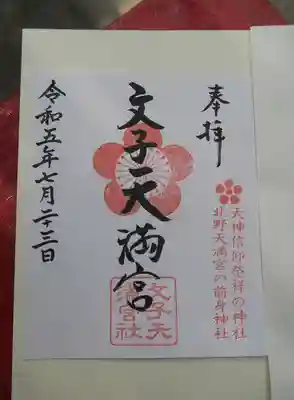 奉拝
天神信仰発祥の神社
北野天満宮の前身神社
文子天満宮
文子天
満宮社
令和五年七月二十三日